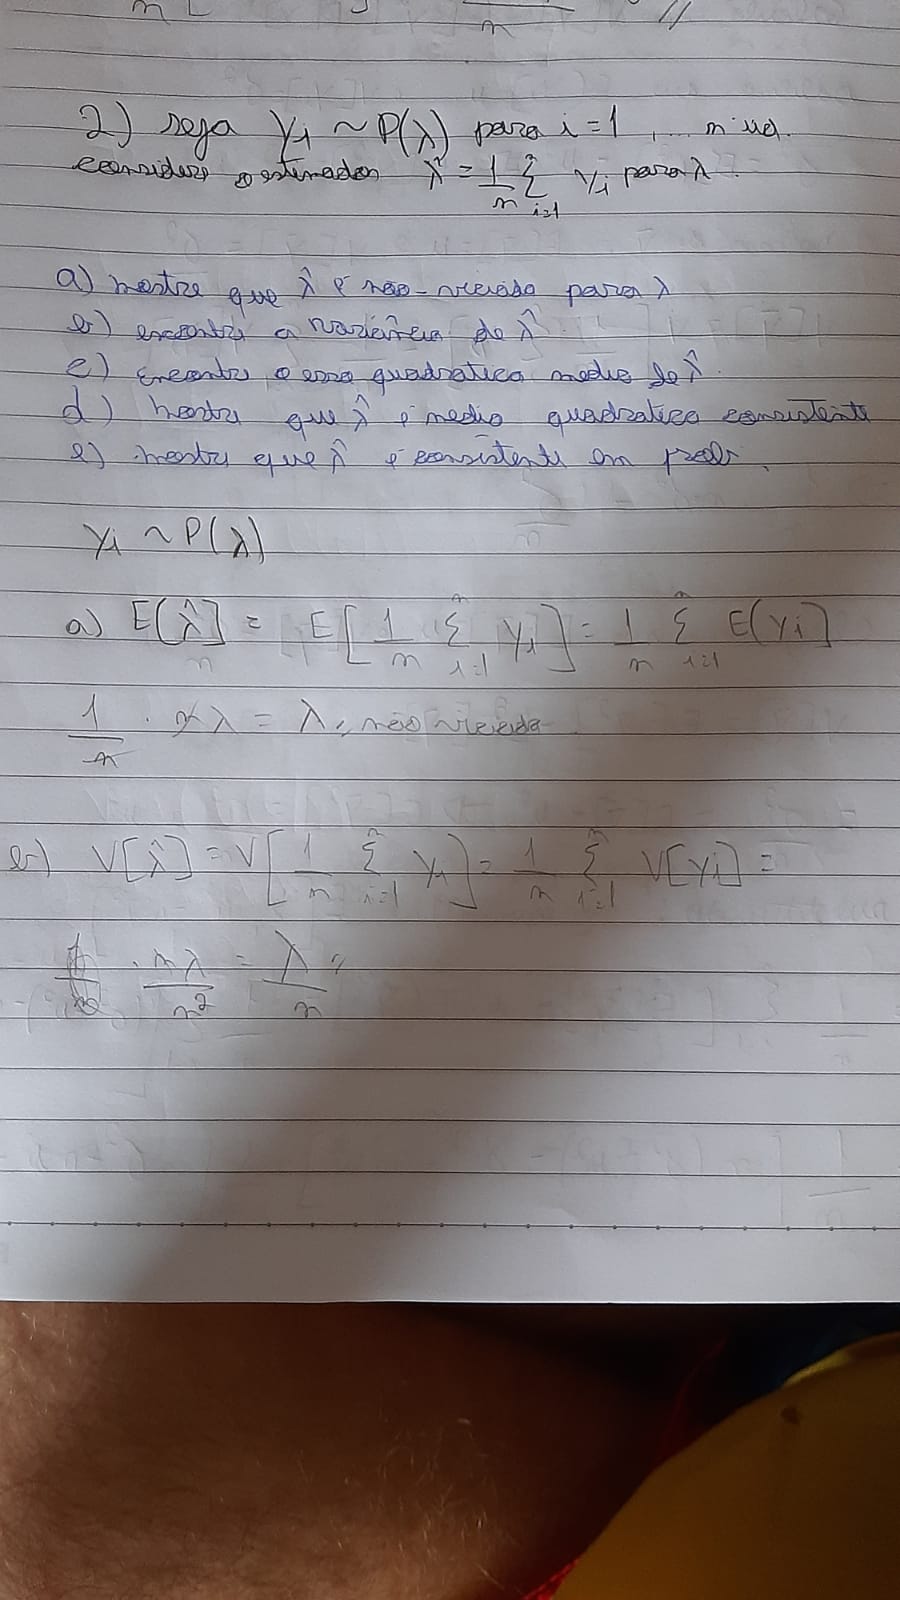 2) seja Yi ~ P(λ) para i = 1, ... n iid.
considere o estimador λ̂ = 1/n Σ i=1 n Yi para λ.
a) mostre que λ̂ é não-viciado para λ
b) encontre a variância de λ̂.
c) Encontre o erro quadratico medio de λ̂.
d) mostre que λ̂ é medio quadratico consistente
e) mostre que λ̂ é consistente em prob.
Yi ~ P(λ)
a) E[λ̂] = E[1/n Σ i=1 n Yi] = 1/n Σ i=1 n E(Yi]
1/n . nλ = λ, não viciada
b) V[λ̂] = V[1/n Σ i=1 n Yi] = 1/n Σ i=1 n V[Yi] =
. nλ/n² = λ/n //